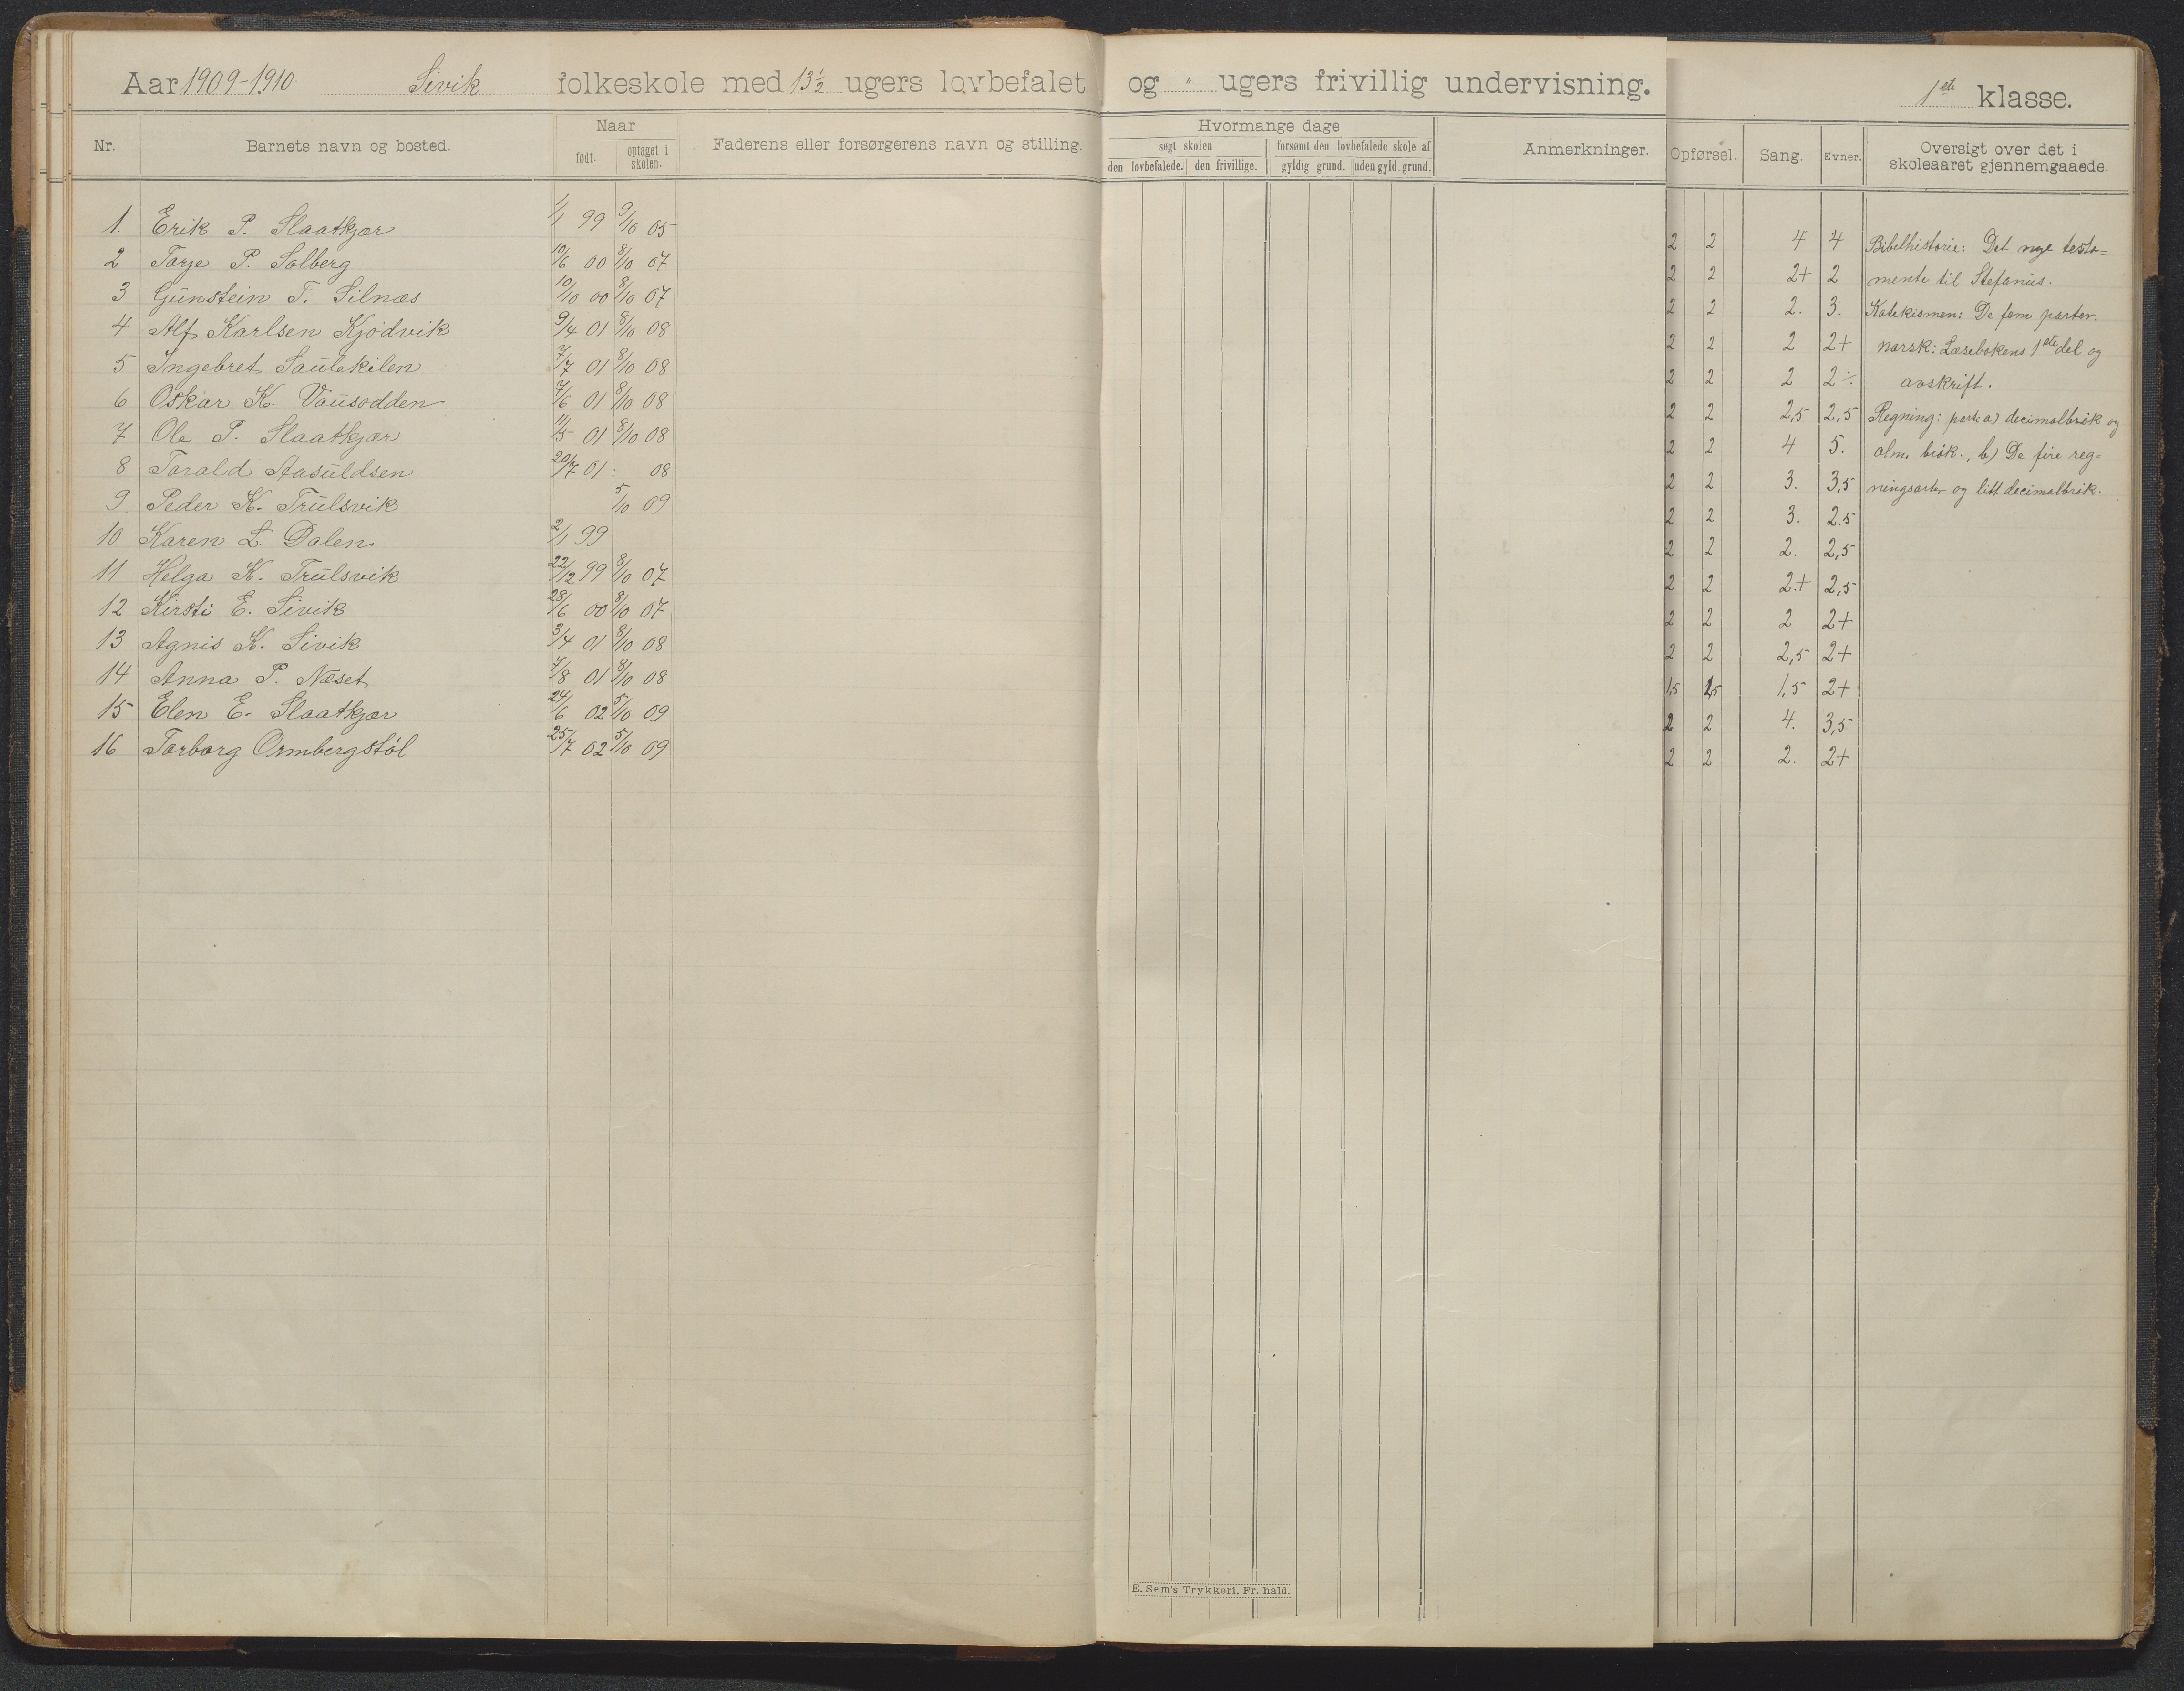 Aar 1909-1910 Sivik folkeskole med 13½ ugers lovbefalet og " ugers frivillig undervisning. 1ste klasse.
Nr. Barnets navn og bosted. Naar født. optaget i skolen. Faderens eller forsørgerens navn og stilling.
Hvormange dage
søgt skolen forsømt den lovbefalede skole af
den lovbefalede. den frivillige. gyldig grund. uden gyld. grund.
Anmerkninger. Opførsel. Sang. Evner. Oversigt over det i skoleaaret gjennemgaaede.
1. Erik P. Slaatkjær 1/1 99 9/10 05
2 Torje P. Solberg 10/6 00 8/10 07
3 Gunstein T. Silnæs 10/10 00 8/10 07
4 Alf Karlsen Kjødvik 9/4 01 8/10 08
5 Ingebret Saulekilen 7/7 01 8/10 08
6 Oskar K. Vausodden 7/6 01 8/10 08
7 Ole P. Slaatkjær 11/5 01 8/10 08
8 Torald Aasuldsen 20/7 01 08
9 Peder K. Trulsvik 5/10 09
10 Karen L. Dalen 2/1 99
11 Helga K. Trulsvik 22/12 99 8/10 07
12 Kirsti E. Sivik 28/6 00 8/10 07
13 Agnis K. Sivik 3/4 01 8/10 08
14 Anna P. Næset 7/8 01 8/10 08
15 Elen E. Slaatkjær 24/6 02 5/10 09
16 Torborg Ormbergstøl 25/7 02 5/10 09
2 2 4 4 Bibelhistorie: Det nye testa=
2 2 2+ 2 mente til Stefanus.
2 2 2. 3. Katekismen: De fem parter.
2 2 2 2+ norsk: Læsebokens 1ste del og
2 2 2 2÷ avskrift.
2 2 2,5 2,5 Regning: parti a) decimalbrøk og
2 2 4 5. alm. brøk., b) De fire reg=
2 2 3. 3,5 ningsarter og litt decimalbrøk.
2 2 3. 2.5
2 2 2. 2,5
2 2 2.+ 2,5
2 2 2 2+
2 2 2,5 2+
1,5 1,5 1,5 2+
2 2 4. 3,5
2 2 2. 2+
E. Sem's Trykkeri, Fr. hald.